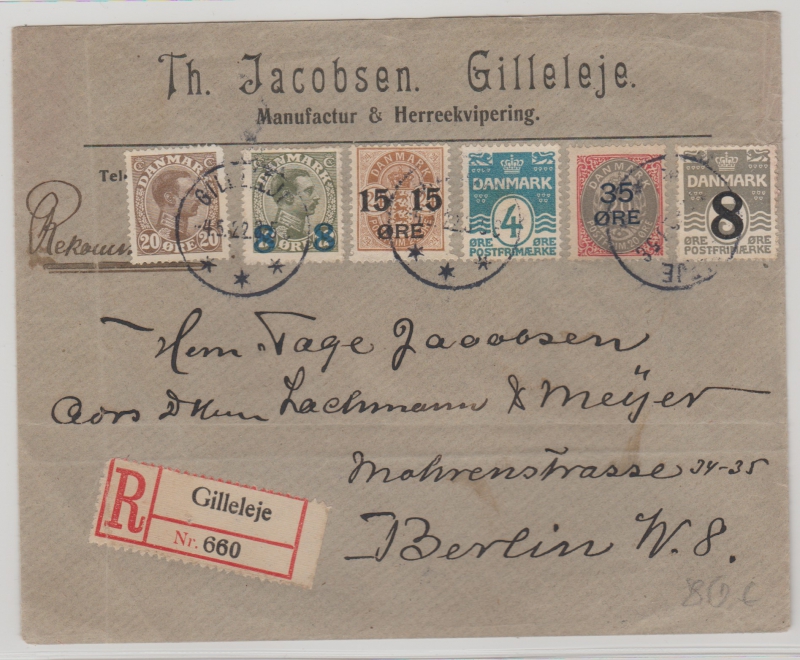 Th. Jacobsen. Gilleleje.
Manufactur & Herreekvipering.
Tel
Rekomm
DANMARK
20 ØRE 20
DANMARK
8 ØRE 8
DANMARK
15 15
ØRE
DANMARK
4
ØRE ØRE
POSTFRIMÆRKE
35
ØRE
DANMARK
8
ØRE ØRE
POSTFRIMÆRKE
GILLELEJE
4.5.22
Herrn Tage Jacobsen
Lachmann & Meÿer
Mohrenstrasse 34-35
Berlin W. 8.
R
Gilleleje
Nr. 660